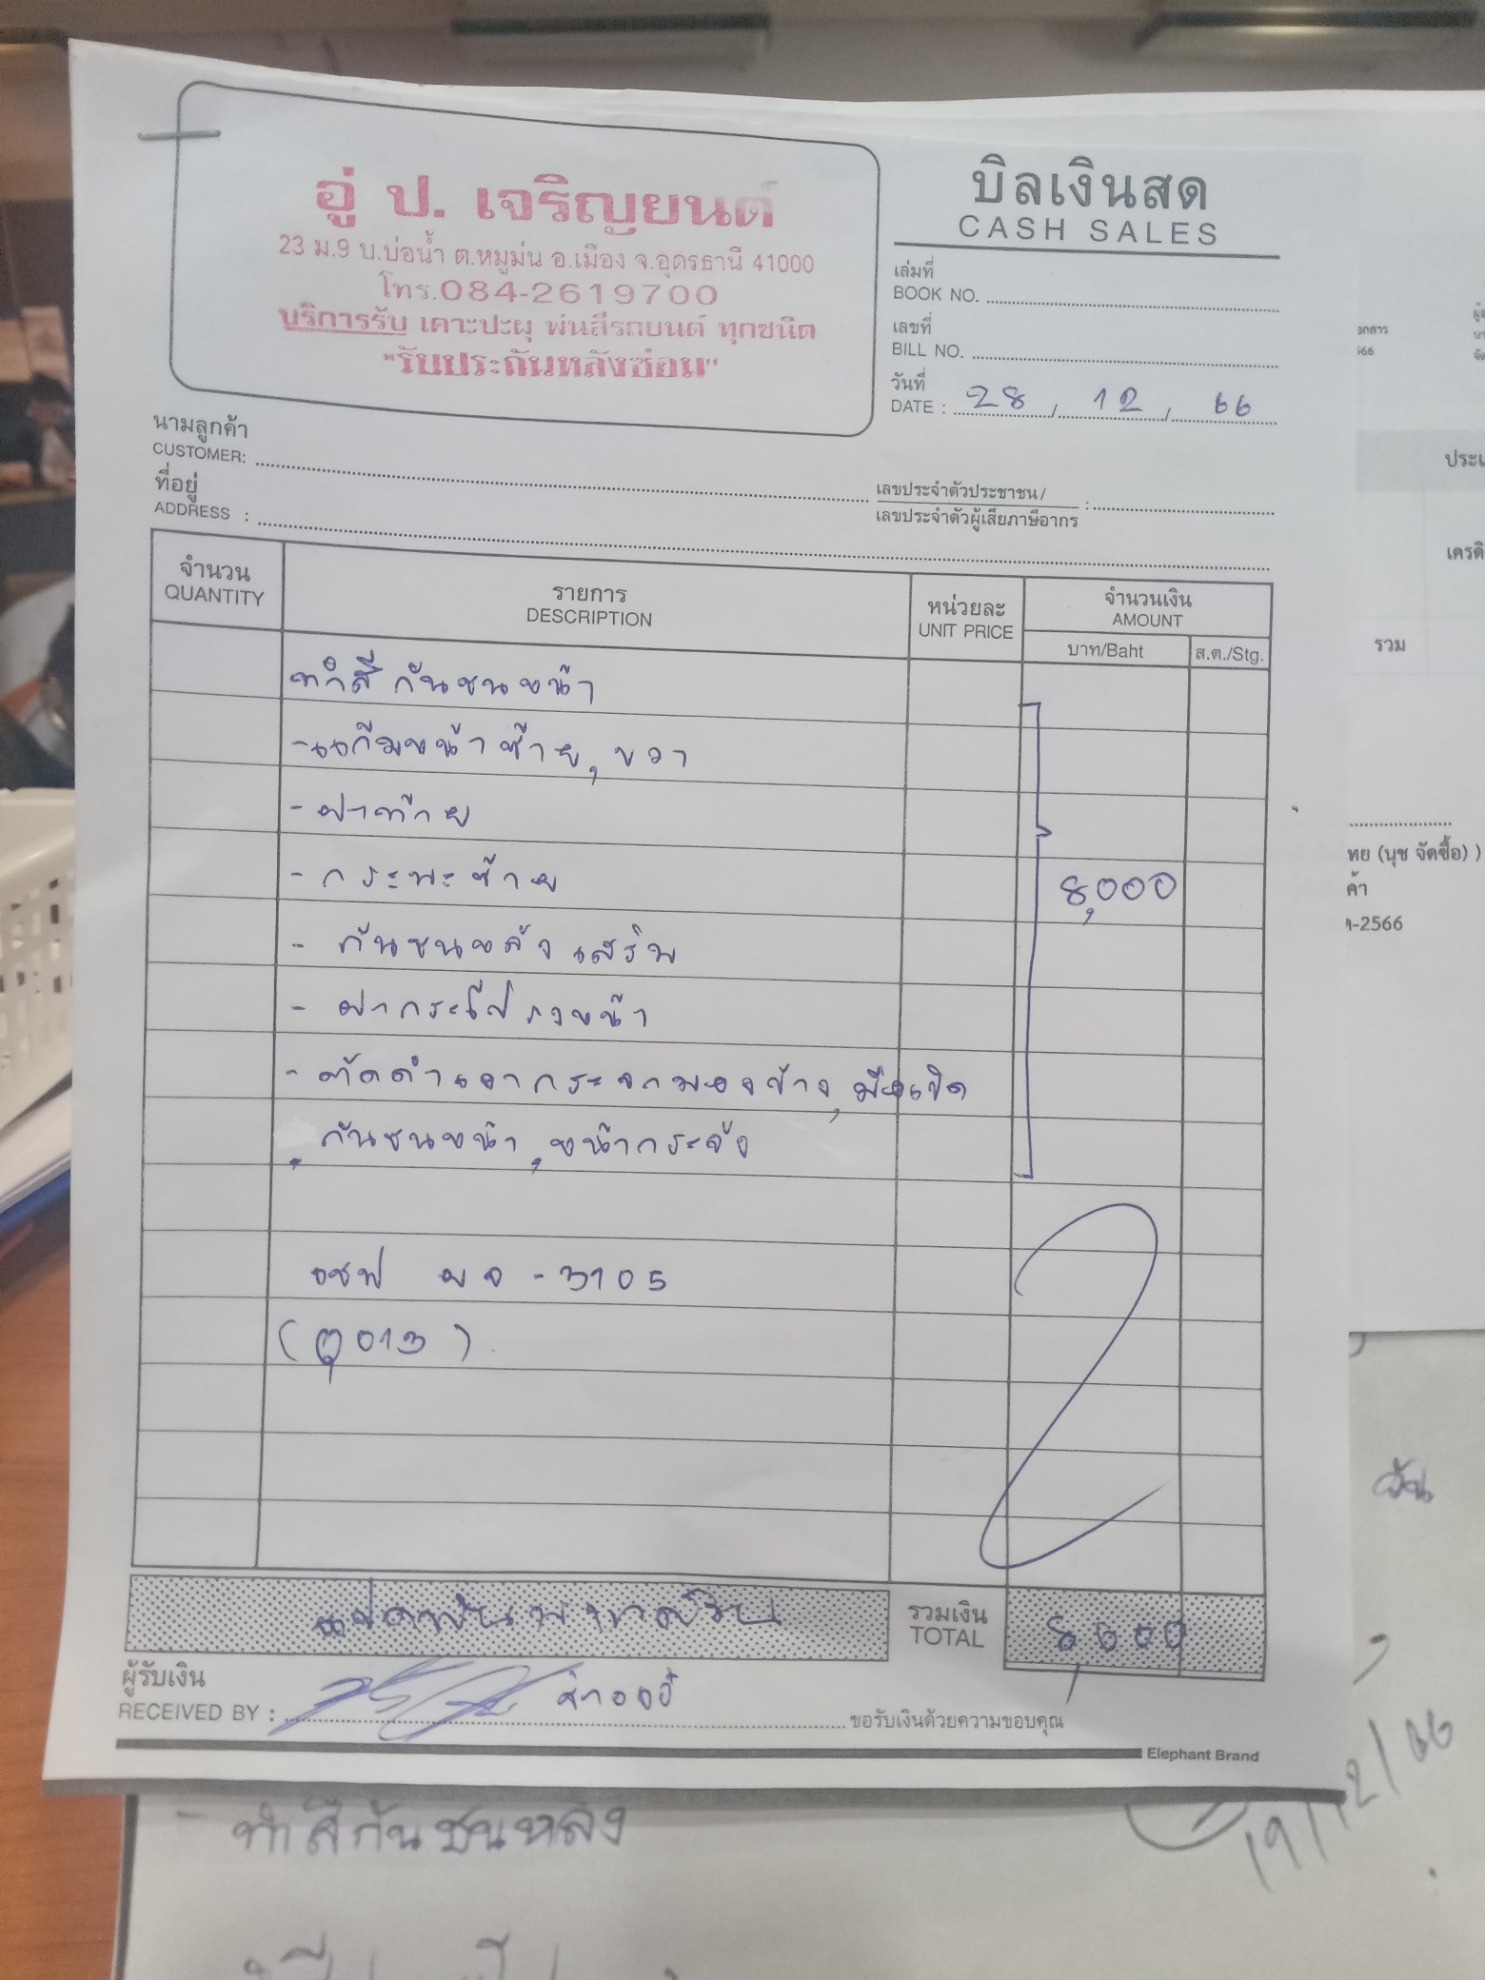 อู่ ป. เจริญยนต์
23 ม.9 บ.บ่อน้ำ ต.หมูม่น อ.เมือง จ.อุดรธานี 41000
โทร.084-2619700
บริการรับ เคาะปะผุ พ่นสีรถยนต์ ทุกชนิด
"รับประกันหลังซ่อม"
บิลเงินสด
CASH SALES
เล่มที่
BOOK NO.
เลขที่
BILL NO.
วันที่
DATE : 28 / 12 / 66
นามลูกค้า
CUSTOMER:
ที่อยู่
ADDRESS :
เลขประจำตัวประชาชน/
เลขประจำตัวผู้เสียภาษีอากร :
จำนวน
QUANTITY
รายการ
DESCRIPTION
หน่วยละ
UNIT PRICE
จำนวนเงิน
AMOUNT
บาท/Baht
ส.ต./Stg.
ทำสี กันชนหน้า
- แก้มหน้าซ้าย, ขวา
- ฝาท้าย
- กระบะซ้าย
8,000
- กันชนหลัง เสริม
- ฝากระโปรงหน้า
- ตัดดำเสากระจกมองข้าง, มือเปิด
, กันชนหน้า, หน้ากระจัง
ผจ - 3105
(ตู013)
แปดพันบาทถ้วน
รวมเงิน
TOTAL
8,000
ผู้รับเงิน
RECEIVED BY :
ขอรับเงินด้วยความขอบคุณ
Elephant Brand
ประเ
เครดิ
รวม
ทย (นุช จัดซื้อ) )
ค้า
-2566
วัน
19/12/66
- ทำสีกันชนหลัง